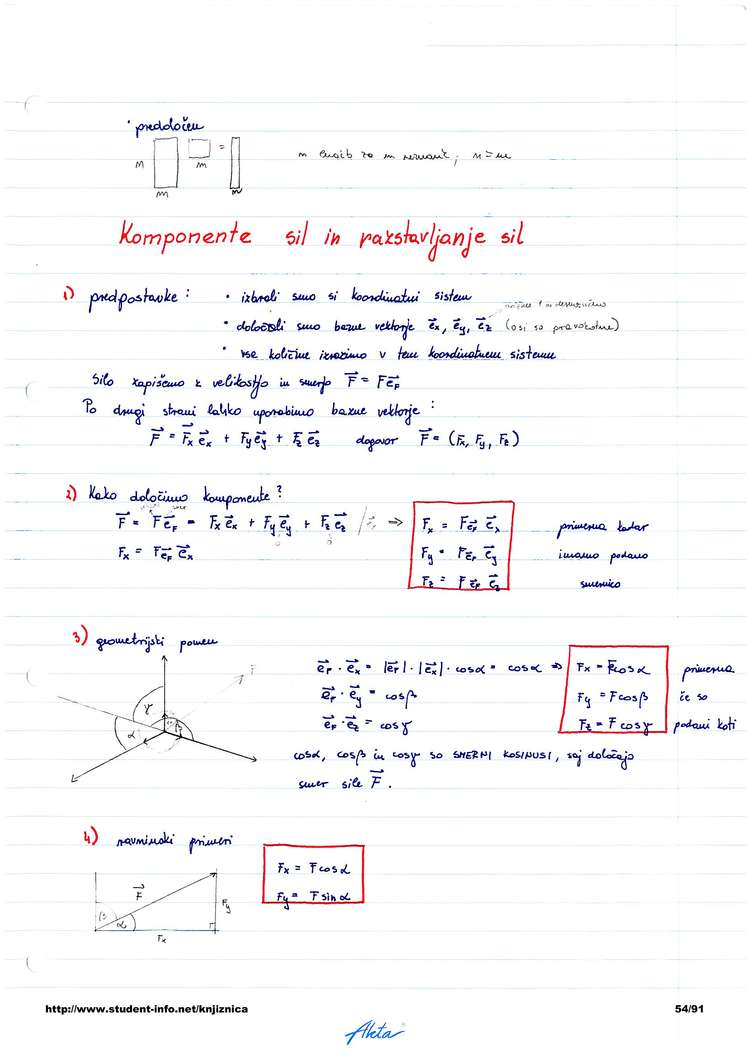 • preddoločen
m
=
m
m
n = m
Komponente sil in razstavljanje sil
1) predpostavke : • izbrali smo si koordinatni sistem
• določili smo bazne vektorje e⃗x, e⃗y, e⃗z (osi so pravokotne)
• vse količine izrazimo v tem koordinatnem sistemu
Silo zapišemo z velikostjo in smerjo F⃗ = Fe⃗F
Po drugi strani lahko uporabimo bazne vektorje :
F⃗ = F⃗x e⃗x + Fy e⃗y + Fz e⃗z dogovor F⃗ = (Fx, Fy, Fz)
2) Kako določimo komponente ?
F⃗ = F e⃗F = Fx e⃗x + Fy e⃗y + Fz e⃗z / e⃗x ⇒ Fx = F e⃗F e⃗x primerna kadar
Fx = F e⃗F e⃗x Fy = F e⃗F e⃗y imamo podano
Fz = F e⃗F e⃗z smernico
3) geometrijski pomen
e⃗F · e⃗x = |e⃗F| · |e⃗x| · cosα = cosα ⇒ Fx = F cosα primerna
e⃗F · e⃗y = cosβ Fy = F cosβ če so
e⃗F · e⃗z = cosγ Fz = F cosγ podani koti
F⃗
γ
β
α
cosα, cosβ in cosγ so SMERNI KOSINUSI, saj določajo
smer sile F⃗.
4) ravninski primeri
Fx = F cosα
Fy = F sinα
F⃗
Fy
β
α
Fx
http://www.student-info.net/knjiznica 54/91
Akta